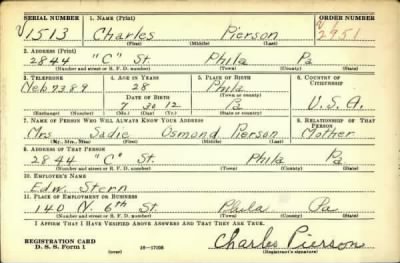 SERIAL NUMBER 1. NAME (Print) ORDER NUMBER
V1513 Charles Pierson V 2951
(First) (Middle) (Last)
2. ADDRESS (Print)
2844 "C" St. Phila Pa
(Number and street or R. F. D. number) (Town) (County) (State)
3. TELEPHONE 4. AGE IN YEARS 5. PLACE OF BIRTH 6. COUNTRY OF CITIZENSHIP
Neb 7389 28 Phila
DATE OF BIRTH (Town or county)
7 30 12 Pa U.S.A.
(Exchange) (Number) (Mo.) (Day) (Yr.) (State or country)
7. NAME OF PERSON WHO WILL ALWAYS KNOW YOUR ADDRESS 8. RELATIONSHIP OF THAT PERSON
Mrs Sadie Osmond Pierson Mother
(Mr., Mrs., Miss) (First) (Middle) (Last)
9. ADDRESS OF THAT PERSON
2844 "C" St. Phila Pa
(Number and street or R. F. D. number) (Town) (County) (State)
10. EMPLOYER'S NAME
Edw. Stern
11. PLACE OF EMPLOYMENT OR BUSINESS
140 N. 6th St. Phila Pa
(Number and street or R. F. D. number) (Town) (County) (State)
I AFFIRM THAT I HAVE VERIFIED ABOVE ANSWERS AND THAT THEY ARE TRUE.
REGISTRATION CARD
D. S. S. Form 1 16—17105 Charles Pierson
(Registrant's signature)